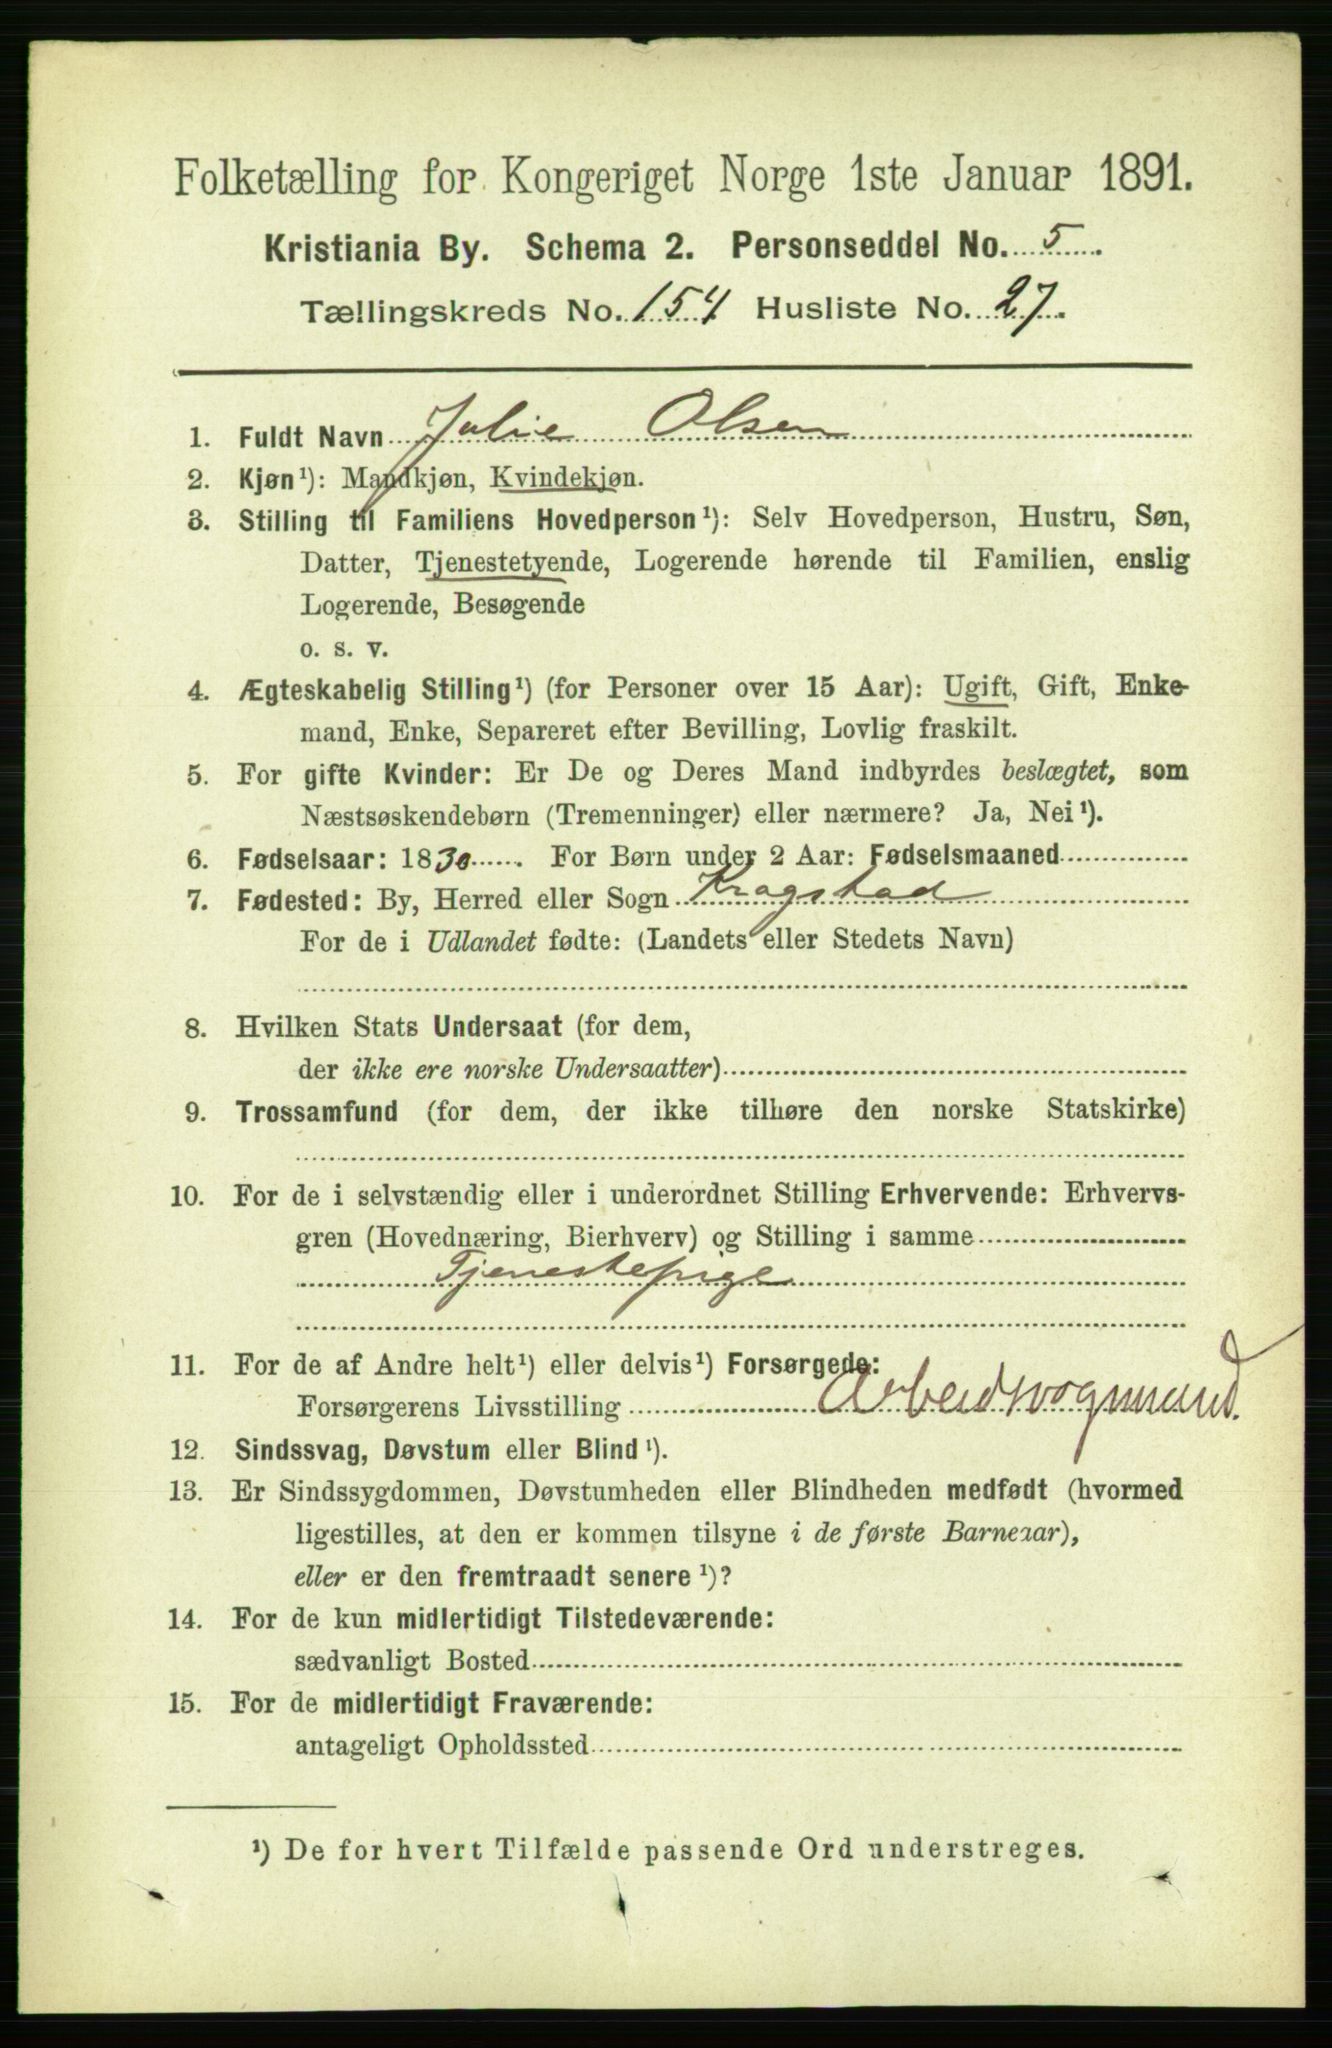 Folketælling for Kongeriget Norge 1ste Januar 1891.
Kristiania By. Schema 2. Personseddel No. 5
Tællingskreds No. 154 Husliste No. 27.
1. Fuldt Navn Julie Olsen
2. Kjøn¹): Mandkjøn, Kvindekjøn.
3. Stilling til Familiens Hovedperson¹): Selv Hovedperson, Hustru, Søn,
Datter, Tjenestetyende, Logerende hørende til Familien, enslig
Logerende, Besøgende
o. s. v.
4. Ægteskabelig Stilling¹) (for Personer over 15 Aar): Ugift, Gift, Enke-
mand, Enke, Separeret efter Bevilling, Lovlig fraskilt.
5. For gifte Kvinder: Er De og Deres Mand indbyrdes beslægtet, som
Næstsøskendebørn (Tremenninger) eller nærmere? Ja, Nei¹).
6. Fødselsaar: 1830. For Børn under 2 Aar: Fødselsmaaned
7. Fødested: By, Herred eller Sogn Kragstad
For de i Udlandet fødte: (Landets eller Stedets Navn)
8. Hvilken Stats Undersaat (for dem,
der ikke ere norske Undersaatter)
9. Trossamfund (for dem, der ikke tilhøre den norske Statskirke)
10. For de i selvstændig eller i underordnet Stilling Erhvervende: Erhvervs-
gren (Hovednæring, Bierhverv) og Stilling i samme
Tjenestepige
11. For de af Andre helt¹) eller delvis¹) Forsørgede:
Forsørgerens Livsstilling Arbeidsvognmand.
12. Sindssvag, Døvstum eller Blind¹).
13. Er Sindssygdommen, Døvstumheden eller Blindheden medfødt (hvormed
ligestilles, at den er kommen tilsyne i de første Barneaar),
eller er den fremtraadt senere¹)?
14. For de kun midlertidigt Tilstedeværende:
sædvanligt Bosted
15. For de midlertidigt Fraværende:
antageligt Opholdssted
¹) De for hvert Tilfælde passende Ord understreges.